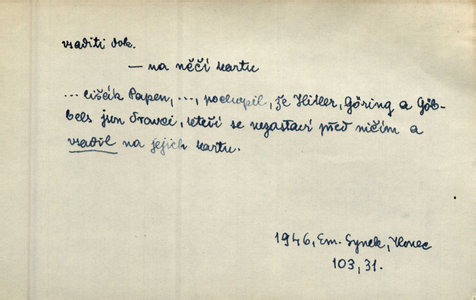 vsaditi dok.
— na něčí kartu
... lišák Papen, ..., pochopil, že Hitler, Göring a Göb-
bels jsou dravci, kteří se nezastaví před ničím a
vsadil na jejich kartu.
1946, Em. Synek, Konec
103, 31.